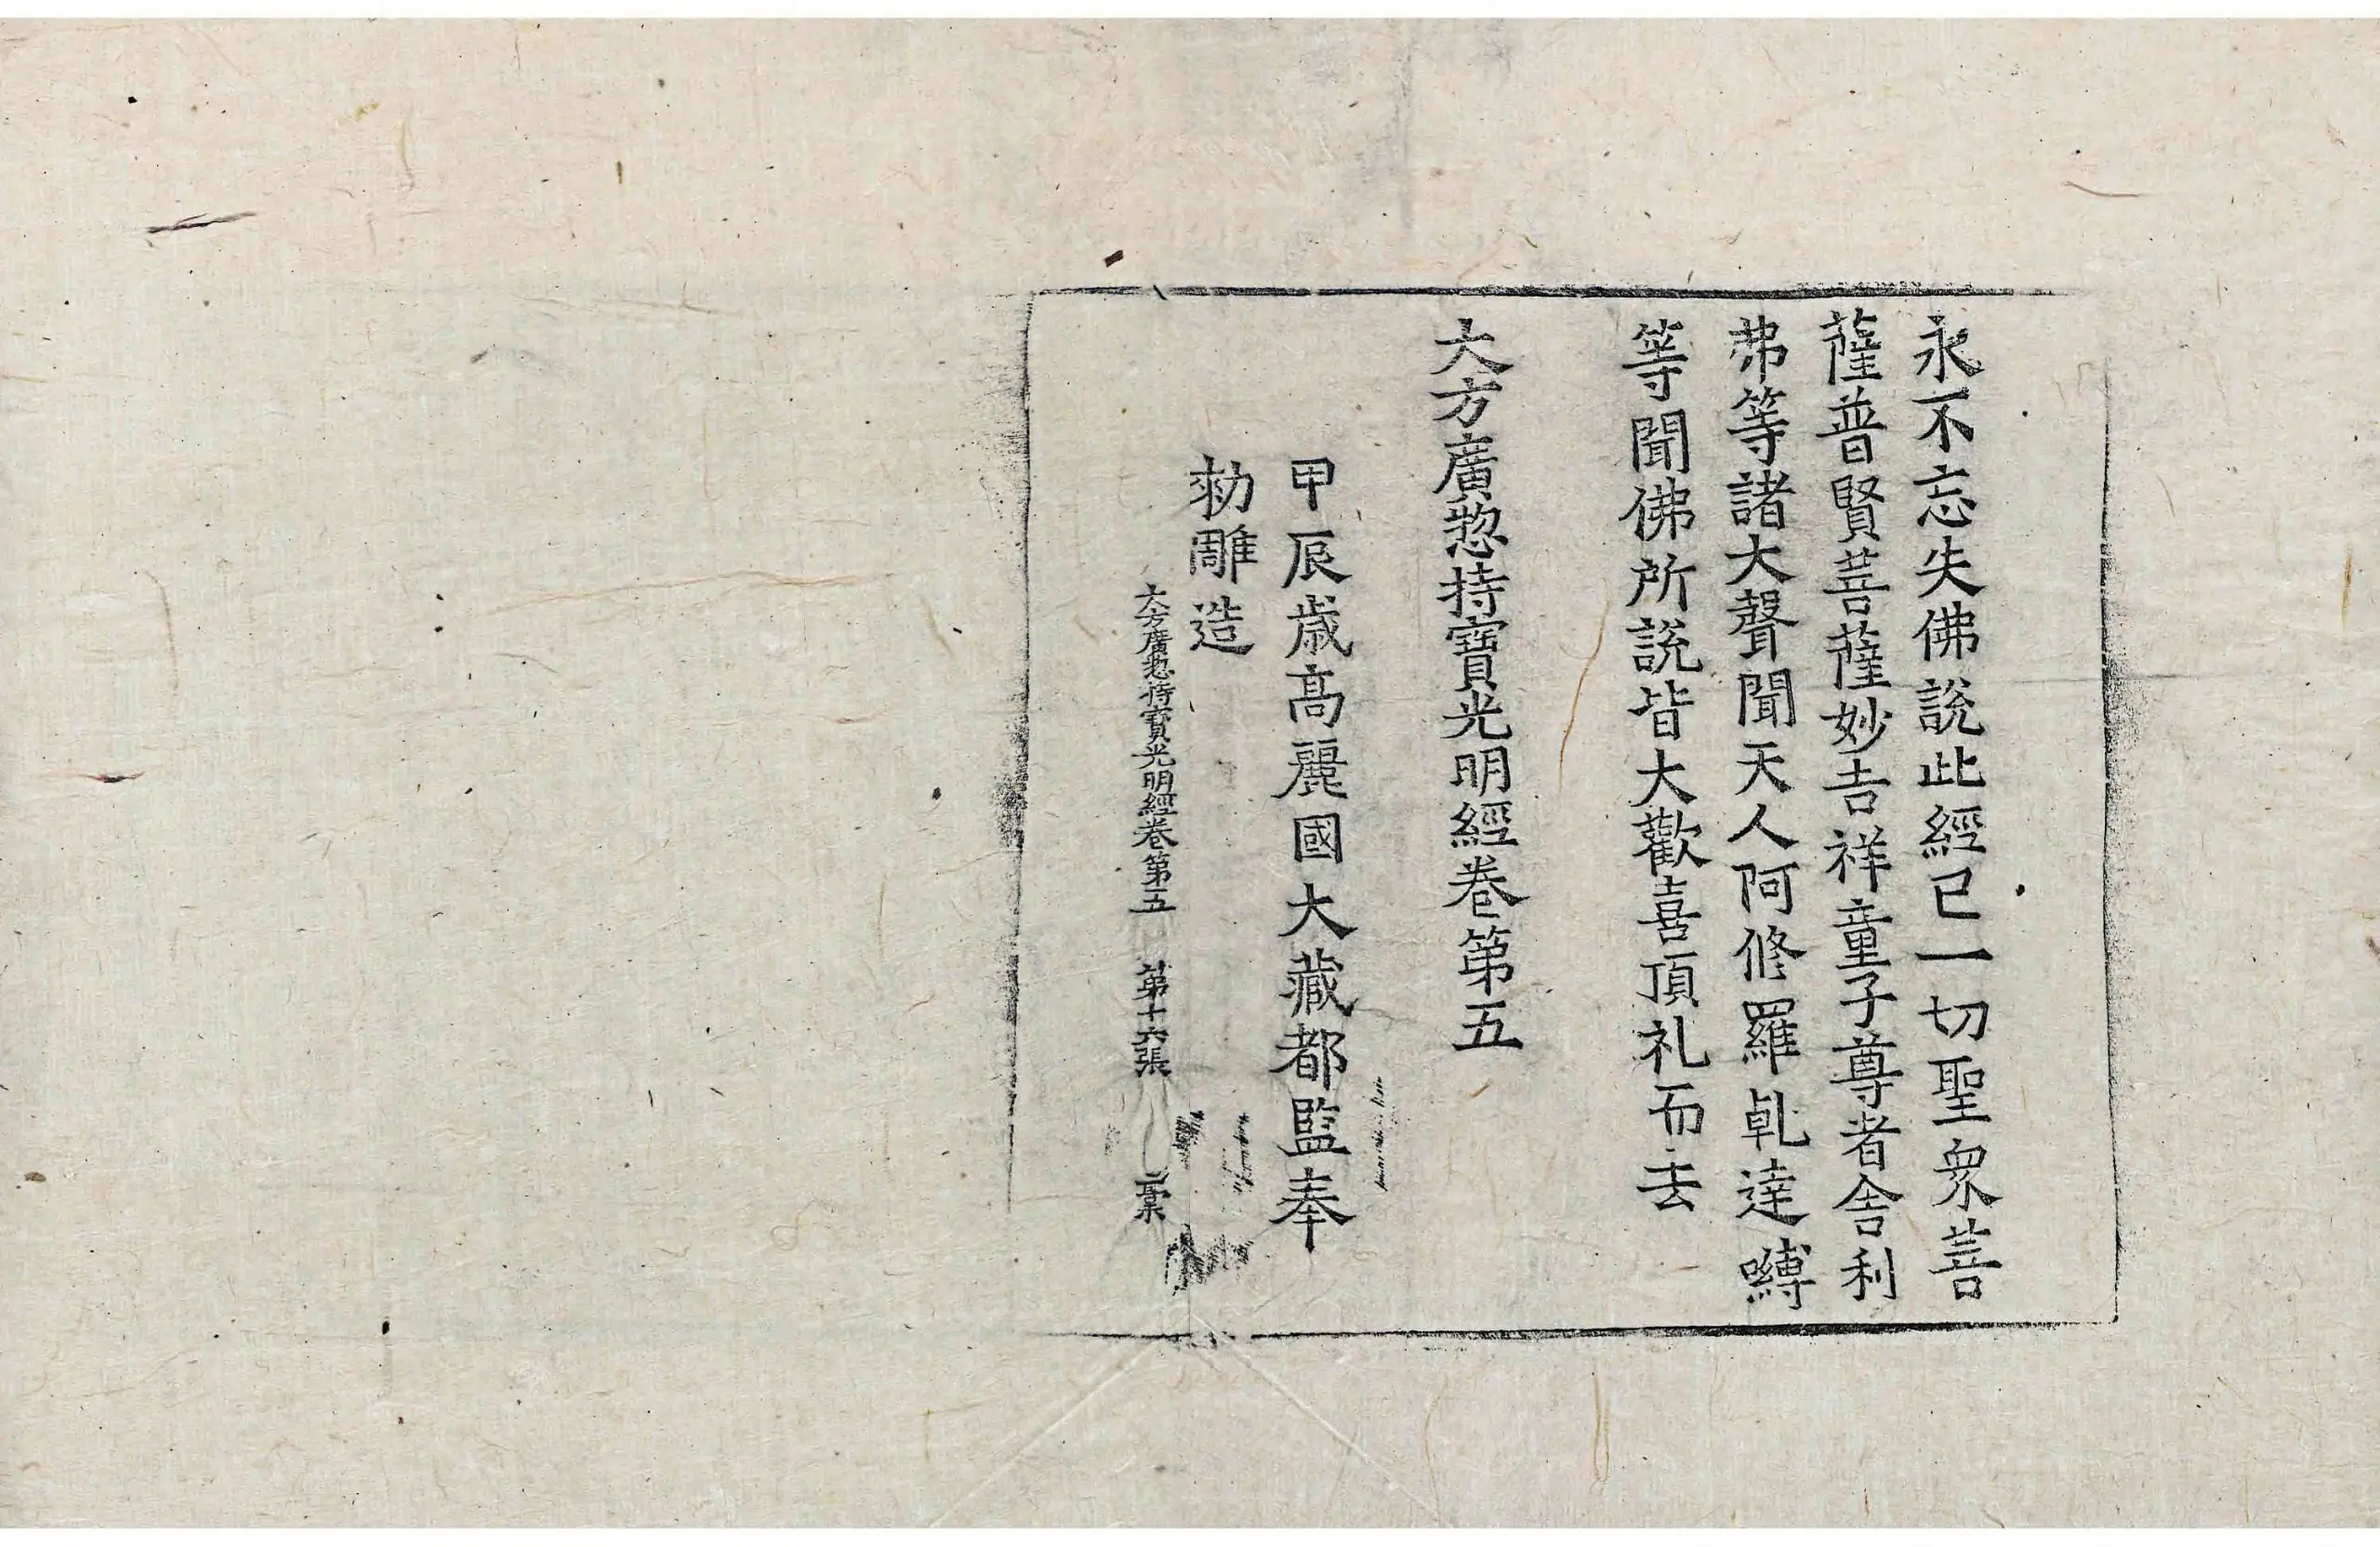 永不忘失佛說此經已一切聖衆菩
薩普賢菩薩妙吉祥童子尊者舍利
弗等諸大聲聞天人阿修羅乹達嚩
等聞佛所說皆大歡喜頂礼而去
大方廣惣持寶光明經卷第五
甲辰歲高麗國大藏都監奉
勑雕造
大方廣惣持寶光明經卷第五 第十六張 槀